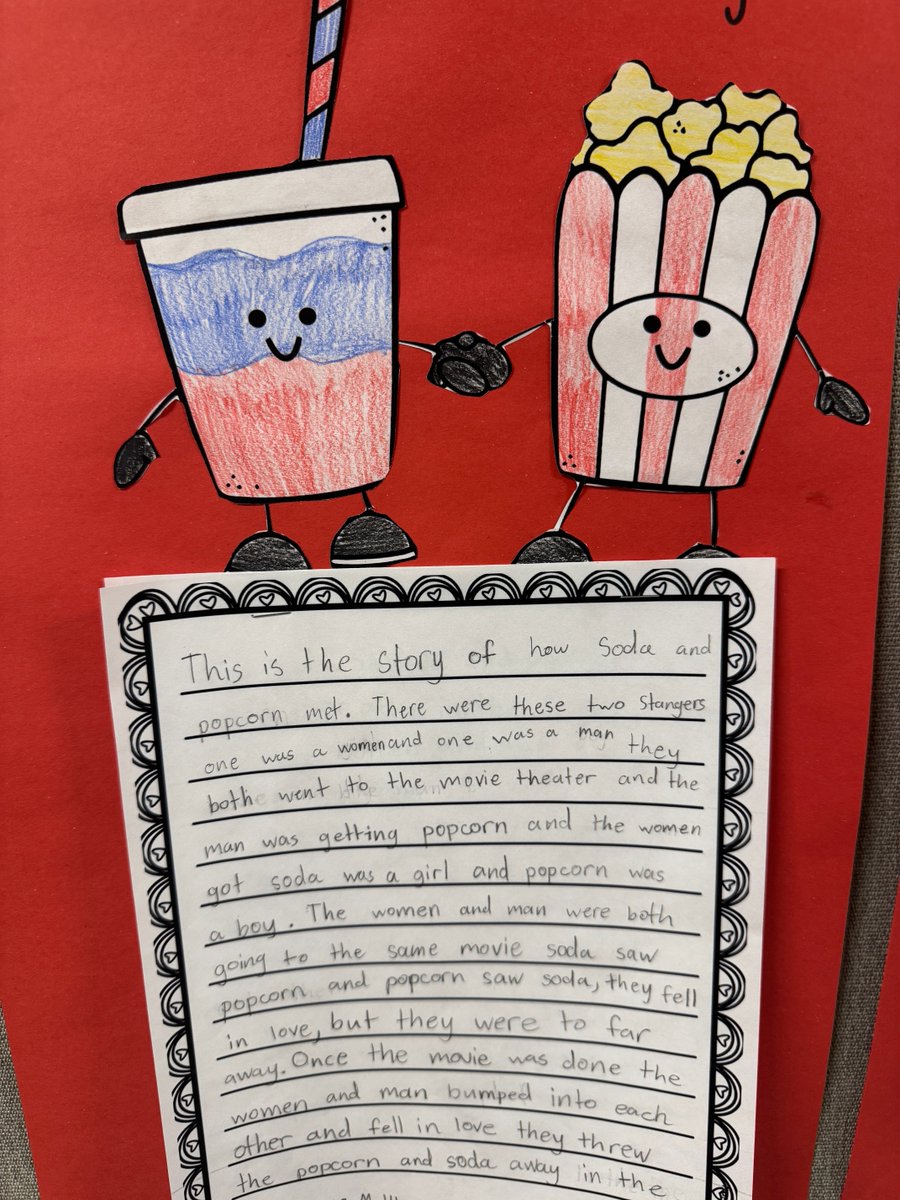 This is the story of how Soda and
popcorn met. There were these two Stangers
one was a women and one was a man they
both went to the movie theater and the
man was getting popcorn and the women
got soda was a girl and popcorn was
a boy. The women and man were both
going to the same movie soda saw
popcorn and popcorn saw soda, they fell
in love, but they were to far
away. Once the movie was done the
women and man bumped into each
other and fell in love they threw
the popcorn and soda away in the